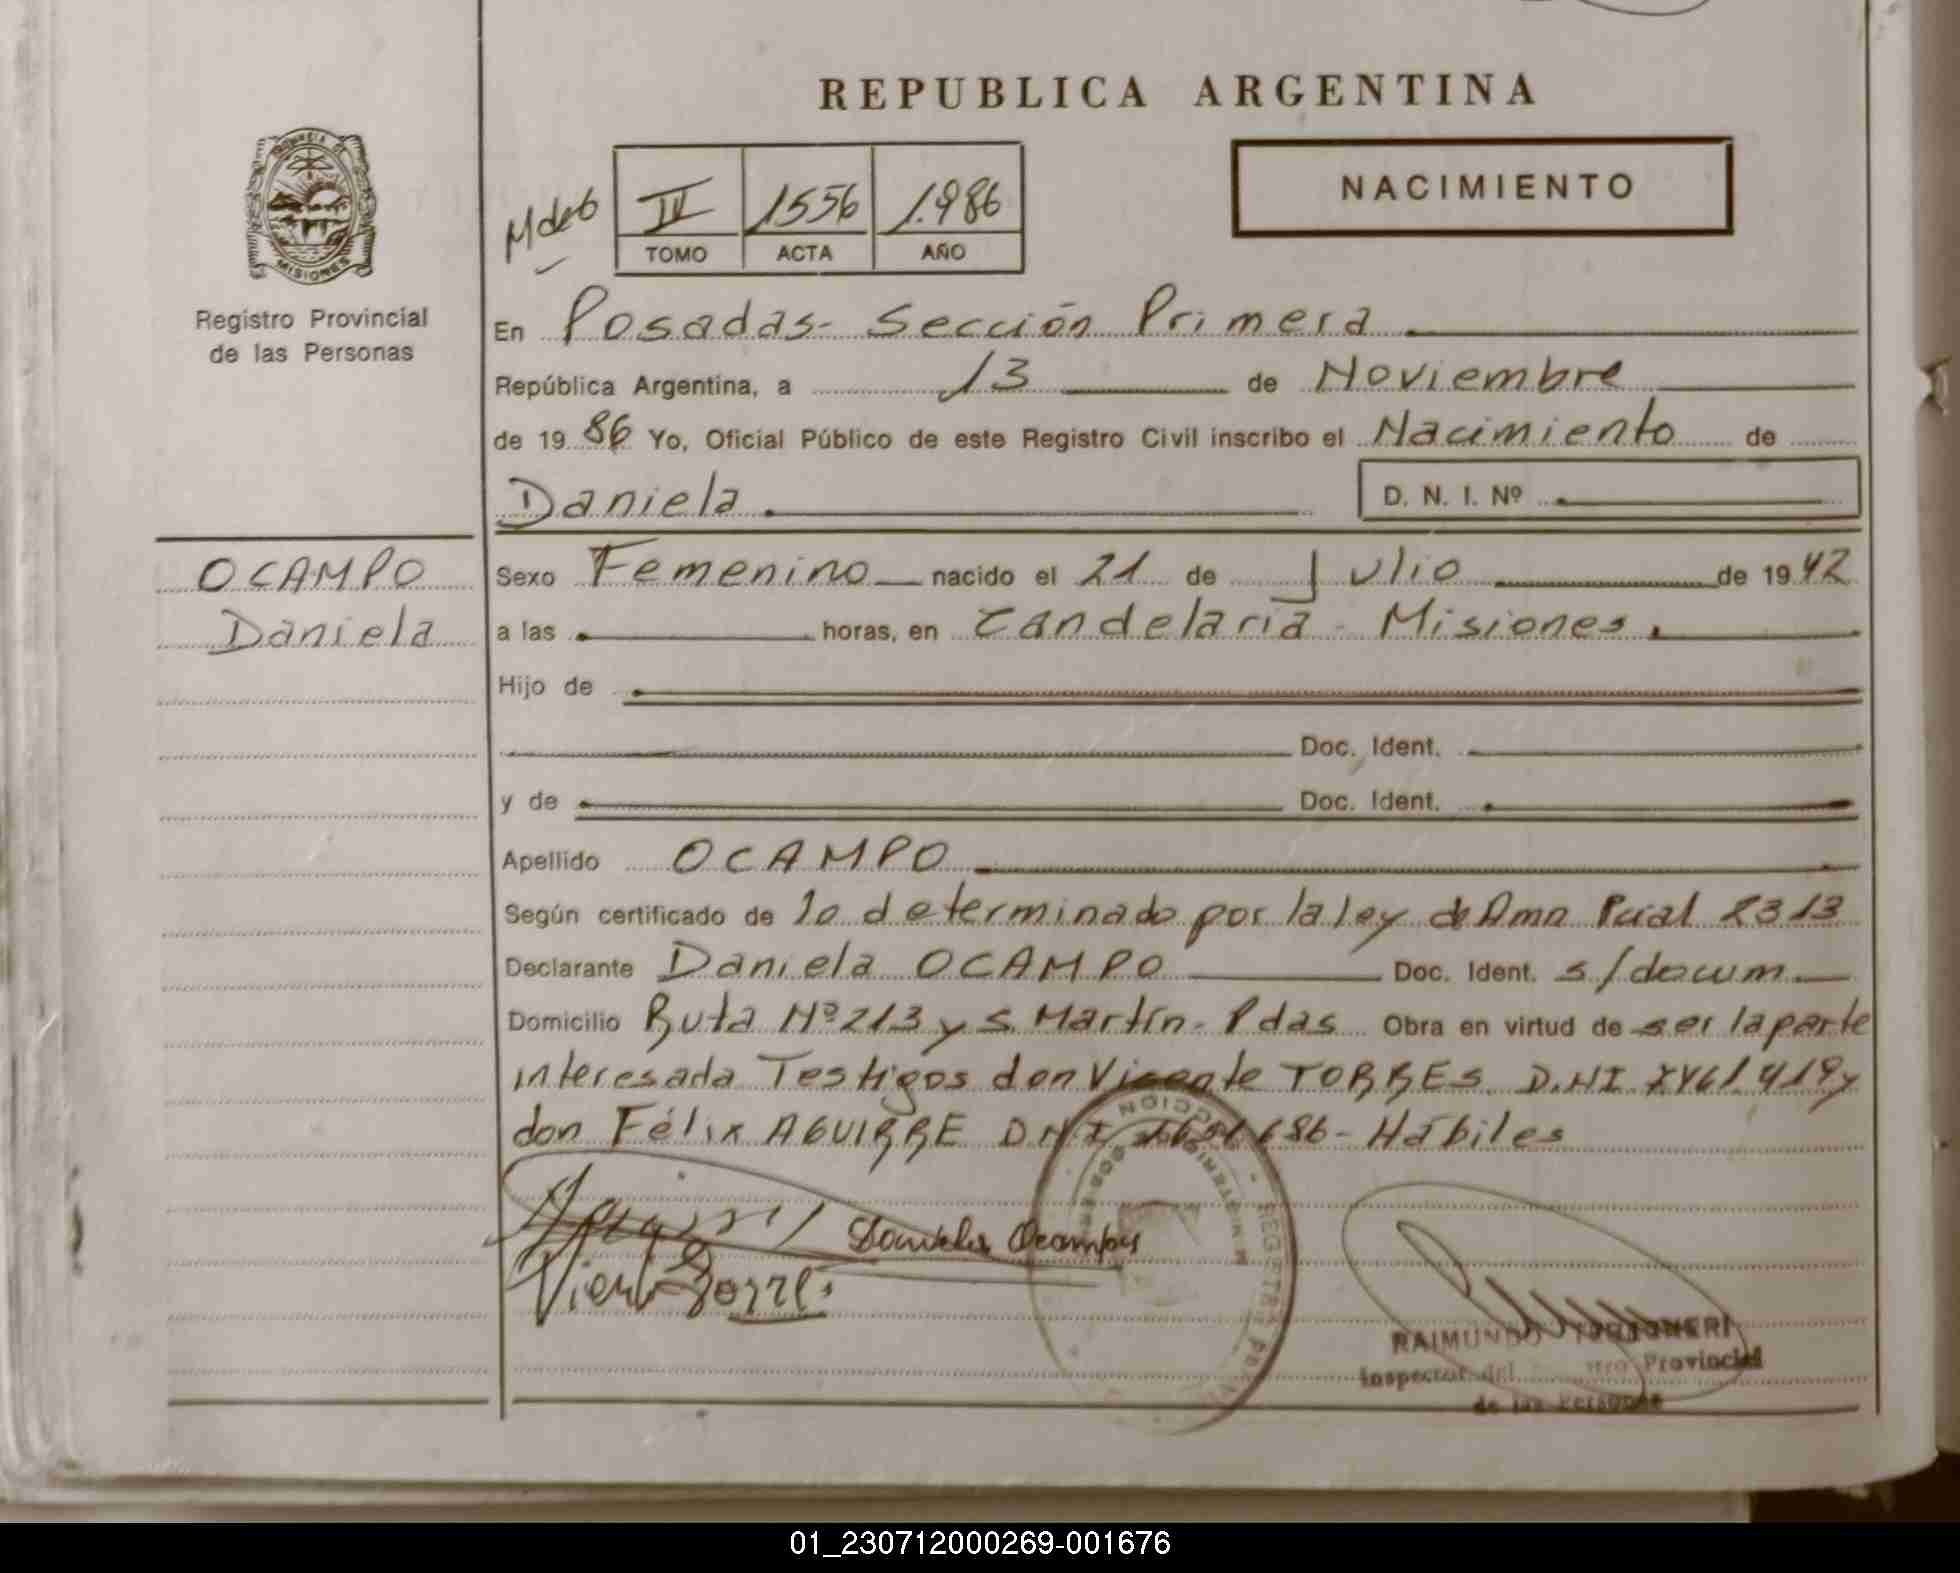 REPUBLICA ARGENTINA
PROVINCIA DE
MISIONES
Registro Provincial
de las Personas
NACIMIENTO
IV 1556 1.986
TOMO ACTA AÑO
En Posadas- Sección Primera
República Argentina, a 13 de Noviembre
de 1986 Yo, Oficial Público de este Registro Civil inscribo el Nacimiento de
Daniela D. N. I. Nº
OCAMPO
Daniela
Sexo Femenino nacido el 21 de Julio de 1942
a las horas, en Candelaria - Misiones.
Hijo de
Doc. Ident.
y de Doc. Ident.
Apellido OCAMPO
Según certificado de lo determinado por la ley de Amn Pcial 2313
Declarante Daniela OCAMPO Doc. Ident. s/docum.
Domicilio Ruta Nº 213 y S. Martín- Pdas Obra en virtud de ser la parte
interesada Testigos don Vicente TORRES D.NI y
don Félix AGUIRRE D N I - Hábiles
Daniela Ocampo
RAIMUNDO
Inspector del Provincial
de las Personas
01_230712000269-001676